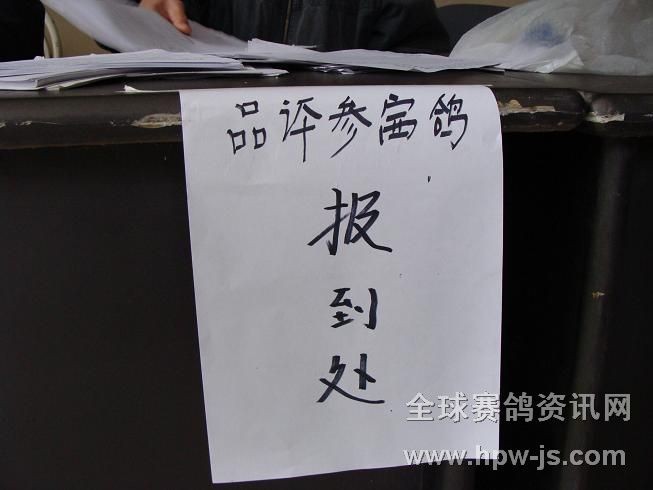 品评参赛鸽
报
到
处
全球赛鸽资讯网
www.hpw-js.com